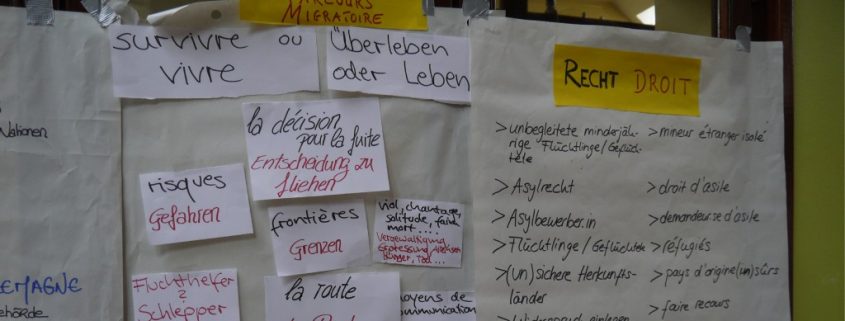 Nationen
EMAGNE
MIGRATOIRE
survivre ou
vivre
Überleben
oder Leben
la décision
pour la fuite
Entscheidung zu
fliehen
risques
Gefahren
frontières
Grenzen
viol, chantage,
solitude, faim
mort....
Vergewaltigung
Hunger, Tod...
Fluchthelfer
Schlepper
la route
moyens de
communication
RECHT DROIT
> unbegleitete minderjäh-
rige Flüchtlinge/Geflüch-
tete
> mineur étranger isolé
> Asylrecht
> droit d'asile
> Asylbewerber.in
> demandeur.se d'asile
> Flüchtlinge/Geflüchtete
> réfugiés
> (un)sichere Herkunfts-
länder
> pays d'origine (un)sûrs
> faire recours